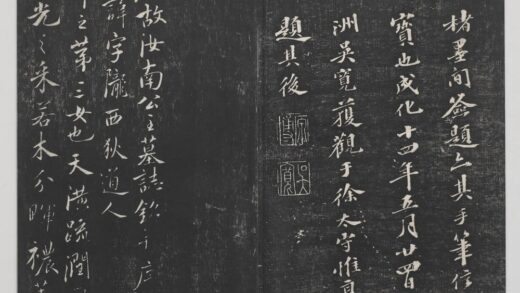 楮墨間簽題亦其手筆信
寶也成化十四年五月廿四日
洲吳寬獲觀于徐太守惟
題其後
原博
吳寬
故汝南公主墓誌銘并序
諱字隴西狄道人
之第三女也天潢疏潤
光之采若木分暉穠